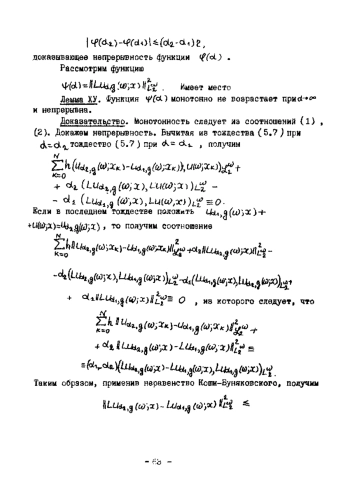 |φ(α₂)−φ(α₁)| ≤ (α₂−α₁)ρ,
доказывающее непрерывность функции φ(α).
Рассмотрим функцию
ψ(α)=‖Lu_{α,g}(ω;x)‖²_{L₂^ω}. Имеет место
Лемма XУ. Функция ψ(α) монотонно не возрастает при α→∞
и непрерывна.
Доказательство. Монотонность следует из соотношений (1),
(2). Докажем непрерывность. Вычитая из тождества (5.7) при
α=α₂ тождество (5.7) при α=α₁, получим
∑_{k=0}^{N} h(u_{α₂,g}(ω;x_k)−u_{α₁,g}(ω;x_k), u(ω;x_k))_{𝓛₂^ω}+
+ α₂(Lu_{α₂,g}(ω;x), Lu(ω;x))_{L₂^ω} −
− α₁(Lu_{α₁,g}(ω;x), Lu(ω;x))_{L₂^ω} ≡ 0.
Если в последнем тождестве положить u_{α₂,g}(ω;x)+
+u(ω;x)=u_{α₁,g}(ω;x), то получим соотношение
∑_{k=0}^{N} h‖u_{α₂,g}(ω;x_k)−u_{α₁,g}(ω;x_k)‖²_{𝓛₂^ω}+α₂‖Lu_{α₂,g}(ω;x)‖²_{L₂^ω}−
−α₂(Lu_{α₂,g}(ω;x), Lu_{α₁,g}(ω;x))_{L₂^ω}−α₁(Lu_{α₁,g}(ω;x), Lu_{α₂,g}(ω;x))_{L₂^ω}+
+ α₁‖Lu_{α₁,g}(ω;x)‖²_{L₂^ω} ≡ 0, из которого следует, что
∑_{k=0}^{N} h‖u_{α₂,g}(ω;x_k)−u_{α₁,g}(ω;x_k)‖²_{𝓛₂^ω}+
+ α₂‖Lu_{α₂,g}(ω;x)−Lu_{α₁,g}(ω;x)‖²_{L₂^ω} ≡
≡(α₁−α₂)(Lu_{α₂,g}(ω;x)−Lu_{α₁,g}(ω;x), Lu_{α₁,g}(ω;x))_{L₂^ω}.
Таким образом, применив неравенство Коши-Буняковского, получим
‖Lu_{α₂,g}(ω;x)−Lu_{α₁,g}(ω;x)‖²_{L₂^ω} ≤
- 68 -